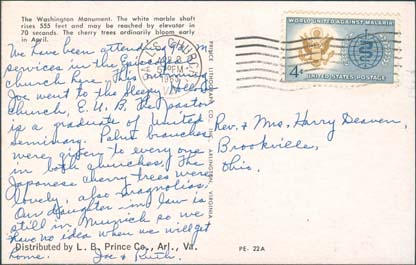 The Washington Monument. The white marble shaft
rises 555 feet and may be reached by elevator in
70 seconds. The cherry trees ordinarily bloom early
in April.
We have been attending the
services in the Episcopal
church here. This morning
Joe went to the Sleepy Hollow
church, E.U.B. The pastor
is a graduate of United
Seminary. Palm branches
were given to every one
in both churches. The
Japanese cherry trees were
lovely, also magnolias.
Our daughter-in-law is
still in Munich so we
have no idea when we will get
home. Joe & Ruth.
Distributed by L. B. Prince Co., Arl., Va.
PRINCE LITHOGRAPH CO., ARLINGTON, VIRGINIA
FALLS CHURCH
PM
WORLD UNITED AGAINST MALARIA
4¢
UNITED STATES POSTAGE
Rev. & Mrs. Harry Deaven,
Brookville,
Ohio.
PE- 22A